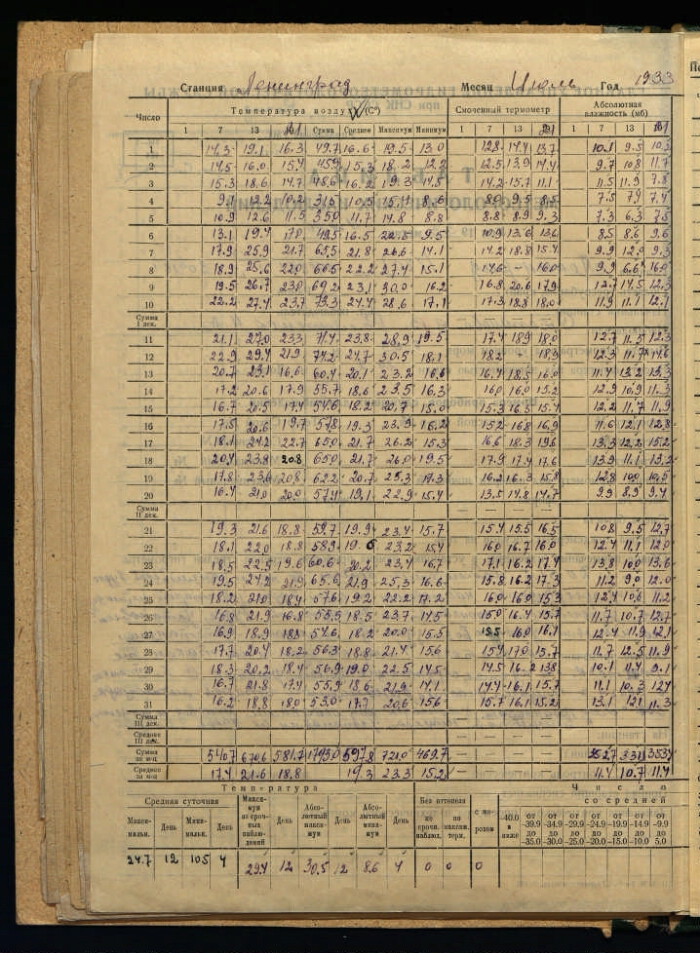 Станция Ленинград Месяц Июль Год 1933
Число Температура воздуха (С°) Смоченный термометр Абсолютная влажность (мб)
1 7 13 21 Сумма Среднее Максимум Минимум 1 7 13 21 1 7 13 21
1 14.3 19.1 16.3 49.7 16.6 19.5 13.0 12.8 14.4 13.7 10.1 9.5
2 14.5 16.0 15.4 45.9 15.3 18.2 12.2 12.5 13.9 14.4 9.7 10.8 11.7
3 15.3 18.6 14.7 48.6 16.2 19.3 14.2 15.7 11.1 11.9 7.8
4 9.1 12.2 10.2 31.5 10.5 15.4 8.6 8.0 9.5 8.5 7.5 7.9 7.4
5 10.9 12.6 11.5 35.0 11.7 14.8 8.8 8.8 8.9 9.3 7.3 6.3
6 13.1 19.4 17.0 49.5 16.5 22.5 9.5 10.9 13.6 13.6 8.5 8.6 9.6
7 17.9 25.9 21.7 65.5 21.8 26.6 14.1 14.2 18.8 15.4 9.9 9.3
8 18.9 25.6 22.0 66.5 22.2 27.4 15.1 14.6 — 16.0 9.9 6.6
9 19.5 26.7 23.0 69.2 23.1 30.0 16.2 16.8 20.6 17.9 12.7 14.5
10 22.2 27.4 23.7 73.3 24.4 28.6 17.1 17.3 18.8 18.0 11.9 11.1 12.1
Сумма I дек. — — — — — —
11 21.1 27.0 23.3 71.4 23.8 28.9 19.5 17.4 18.9 18.0 12.7 11.5 12.3
12 22.9 29.4 21.9 74.2 24.7 30.5 18.1 18.2 — 18.3 12.3 11.7 14.6
13 20.7 23.1 16.6 60.4 20.1 23.2 16.6 16.4 18.5 16.0 11.4 13.2 13.3
14 17.2 20.6 17.9 55.7 18.6 23.5 16.3 16.0 16.0 15.2 12.9 10.9 11.3
15 16.7 20.5 17.4 54.6 18.2 20.7 15.0 15.3 16.5 15.4 12.2 11.7 11.9
16 17.5 20.6 19.7 57.8 19.3 23.9 16.2 15.2 16.8 16.9 11.6 12.1 12.8
17 18.1 24.2 22.7 65.0 21.7 26.2 15.3 16.6 18.3 19.6 13.3 12.2 15.2
18 20.4 23.8 20.8 65.0 21.7 26.0 19.5 17.9 17.4 17.6 13.9 11.1 13.2
19 17.8 23.6 20.8 62.2 20.7 25.3 19.3 16.2 16.3 15.8 12.8 10.0 10.5
20 16.4 21.0 20.0 57.4 19.1 22.9 15.4 13.5 14.8 14.7 9.9 8.9 9.4
Сумма II дек. — — — — — —
21 19.3 21.6 18.8 59.7 19.9 23.4 15.7 15.4 15.5 16.5 10.8 9.5 12.7
22 18.1 22.0 18.8 58.9 19.6 23.2 15.4 16.0 16.7 16.0 12.4 11.1 12.0
23 18.5 22.5 19.6 60.6 20.2 23.4 16.7 17.1 16.2 17.4 13.8 10.0 13.6
24 19.5 24.2 21.9 65.6 21.9 25.3 16.6 15.8 16.2 17.3 11.2 9.0 12.0
25 18.2 21.0 18.4 57.6 19.2 22.2 17.2 16.0 16.0 15.3 12.4 10.6 11.2
26 16.8 21.9 16.8 55.5 18.5 23.7 14.5 15.0 16.4 15.7 11.7 10.7 12.7
27 16.9 18.9 18.8 54.6 18.2 20.0 15.5 15.5 16.0 16.1 12.4 11.9 12.1
28 17.7 20.4 18.2 56.3 18.8 21.4 15.6 15.4 17.0 15.7 11.7 12.5 11.9
29 18.3 20.2 18.4 56.9 19.0 22.5 14.5 14.5 16.2 13.8 10.1 11.4 9.1
30 16.7 21.8 17.4 55.9 18.6 21.9 14.1 14.4 16.1 15.7 11.1 10.3 12.4
31 16.2 18.8 18.0 53.0 17.7 20.6 15.6 15.7 16.1 15.2 13.1 12.1 11.3
Сумма III дек. — — — — — —
Среднее III дек. — — — — — —
Сумма за м-ц 540.7 670.6 581.7 1793.0 597.8 721.0 469.7 — — — 352.7 353.4
Среднее за м-ц 17.4 21.6 18.8 19.3 23.3 15.2 — — — 11.4 10.7 11.4
Температура Число
Средняя суточная Максимум из срочных наблюдений День Абсолютный максимум День Абсолютный День Без оттепели с морозом со средней
Максимальн. День День по срочн. наблюд. по максим. терм. -40.0 и ниже от -39.9 до -35.0 от -34.9 до -30.0 от -29.9 до -25.0 от -24.9 до -20.0 от -19.9 до -15.0 от -14.9 до -10.0 от -9.9 до 5.0
24.7 12 10.5 4 29.4 12 30.5 12 8.6 4 0 0 0